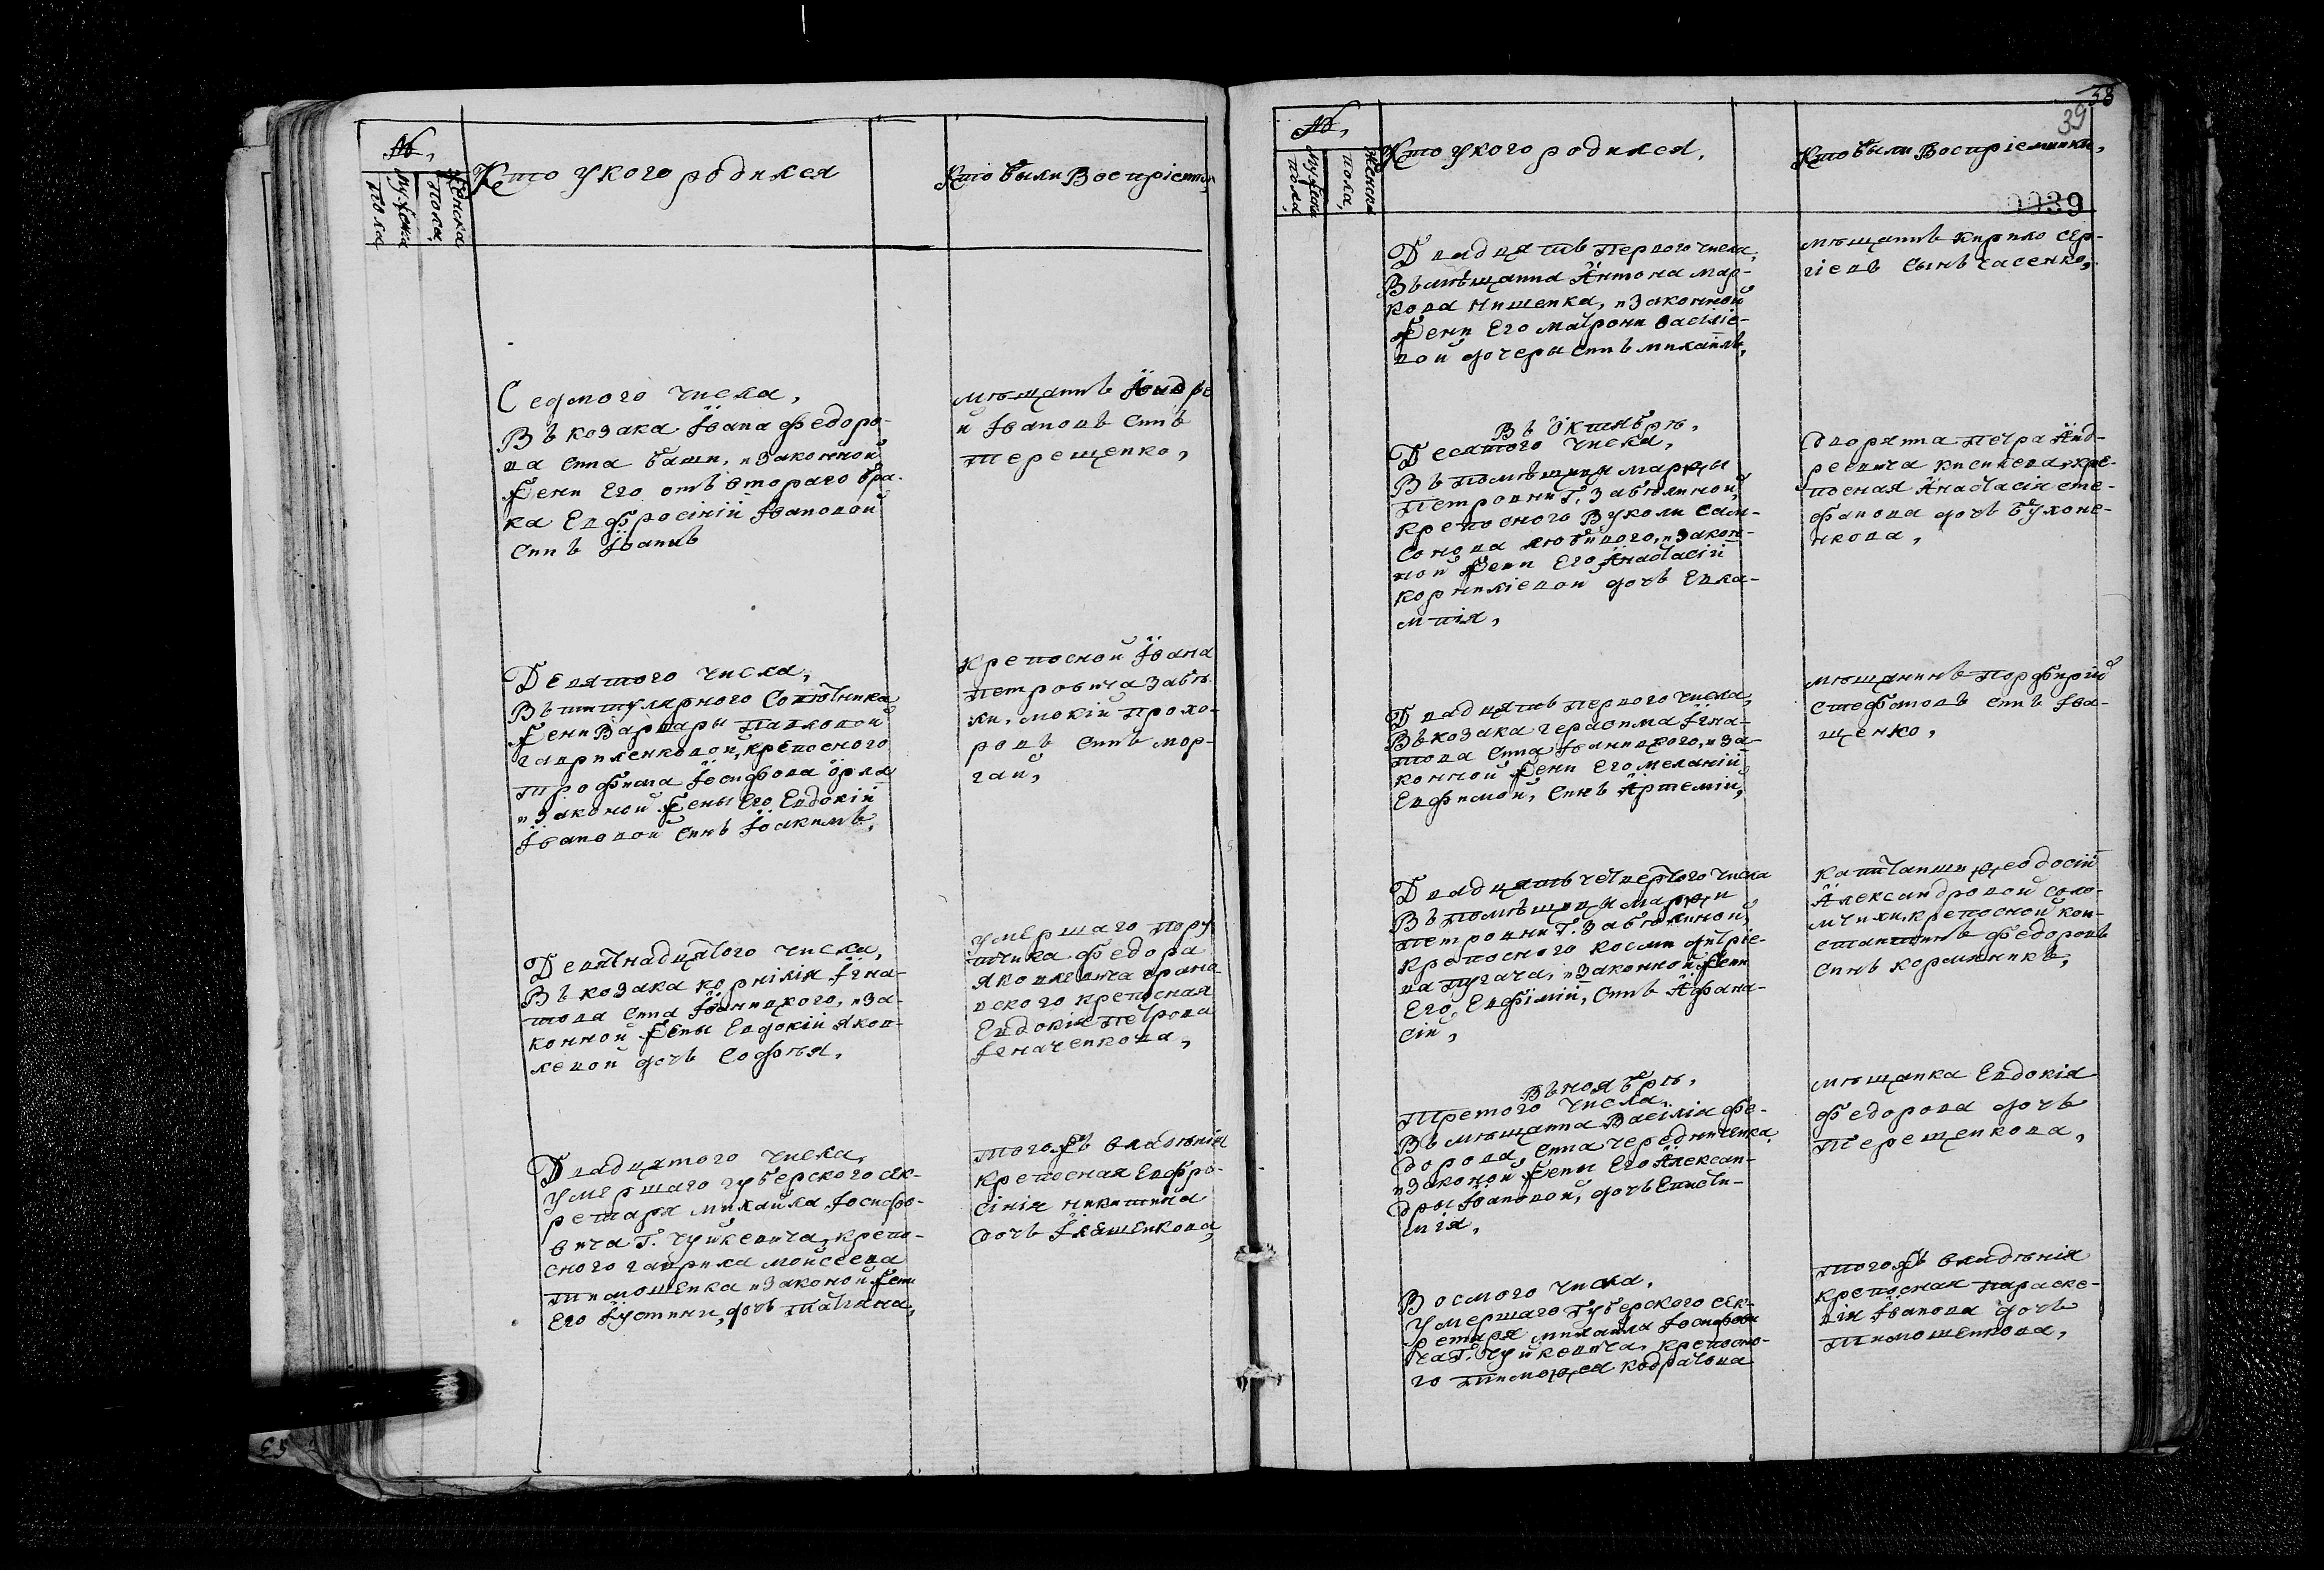 №,
мужеска пола
женска пола,
Кто укого родился
Кто были Восприемни
Седмого числа,
Въ козака Іоана федоро-
ва сина баши, и законной
жени Его отъ втораго бра-
ка Евфросиніи Іоановой
синъ Іоанъ
мѣщанинъ Андре
й Іоановъ синъ
терещенко,
Девятого числа,
Въ титулярного Совѣтника
жени Варвары Павловой
гавриленковой, крепосного
трофима Іосифова орла
и законой жены Его Евдокіи
Іоановой синъ Іоакимъ,
крепосной Іоана
Петровича забѣ-
ли, мокій прохо-
ровъ синъ мор-
гай,
Девятнадцятого числа,
Въ козака корнілія Ігна-
това сина Іваницкого, и за-
конной жены Евдокіи яков-
левой дочъ Софія,
умершаго пору
тчика федора
яковлевича грано
вского крепосная
Евдокія Петрова
Геначенкова,
Двадцятого числа,
умершаго губерского сек-
ретаря михаила Іосифо-
вича Г. чуйкевича, крепо-
сного гаврила мойсеева
тимошенка и законой жени
его Іустини, дочъ татіана,
тогожъ владѣнія
крепосная Евфро-
сінія никитина
дочъ Іляшенкова,
38
39
00039
№,
мужеска пола,
женска пола,
Кто укого родился,
Кто были Восприемники,
Двадцять первого числа,
Въ мѣщанина Антона мар-
кова нищенка, и законной
жени Его матрони васіліе-
вой дочери синъ михаилъ,
мѣщанинъ кирило сер-
гіевъ сынъ часенко,
Въ Октябрѣ,
Десятого числа,
Въ помѣщици марфи
Петровни Г. Забѣлиной
крепосного Вуколи сам-
сонова любивого, и закон-
ной жени Его Анастасіи
корниліевой дочъ Евла-
мпія,
дворянина Петра Анд-
реевича киселева, кре-
посная Анастасія сте-
фанова дочъ бухоне-
нкова,
Двадцять первого числа,
Въ козака герасима Ігна-
това сина Іваницкого, и за-
конной жени Его меланіи
Евфимой, синъ Артемій,
мѣщанинъ Порфирій
стефановъ синъ Іва-
щенко,
Двадцять четвертого числа
Въ помѣщици марфи
петровни Г. Забѣлиной,
крепосного косми дмтріе-
ва пугача, и законной жени
Его, Евфіміи, синъ Афана-
сій,
капитанши феодосіи
Александровой соло-
мчихи, крепосной кон-
стантинъ федоровъ
синъ кормликъ,
Въ ноябрѣ,
Третого числа,
Въ мѣщанина Василія фе-
дорова, сина чередниченка,
и законой жены Его Алексан-
дры Іоановой, дочъ Еписти-
мія,
мѣщанка Евдокія
федорова дочъ
терещенкова,
Восмого числа,
умершаго Губерского сек-
ретаря михаила Іосифови
ча Г. чуйкевича, крепосно-
го тимофея кодратова
тогожъ владѣнія
крепосная параске-
вія Іоанова дочъ
тимошенкова,